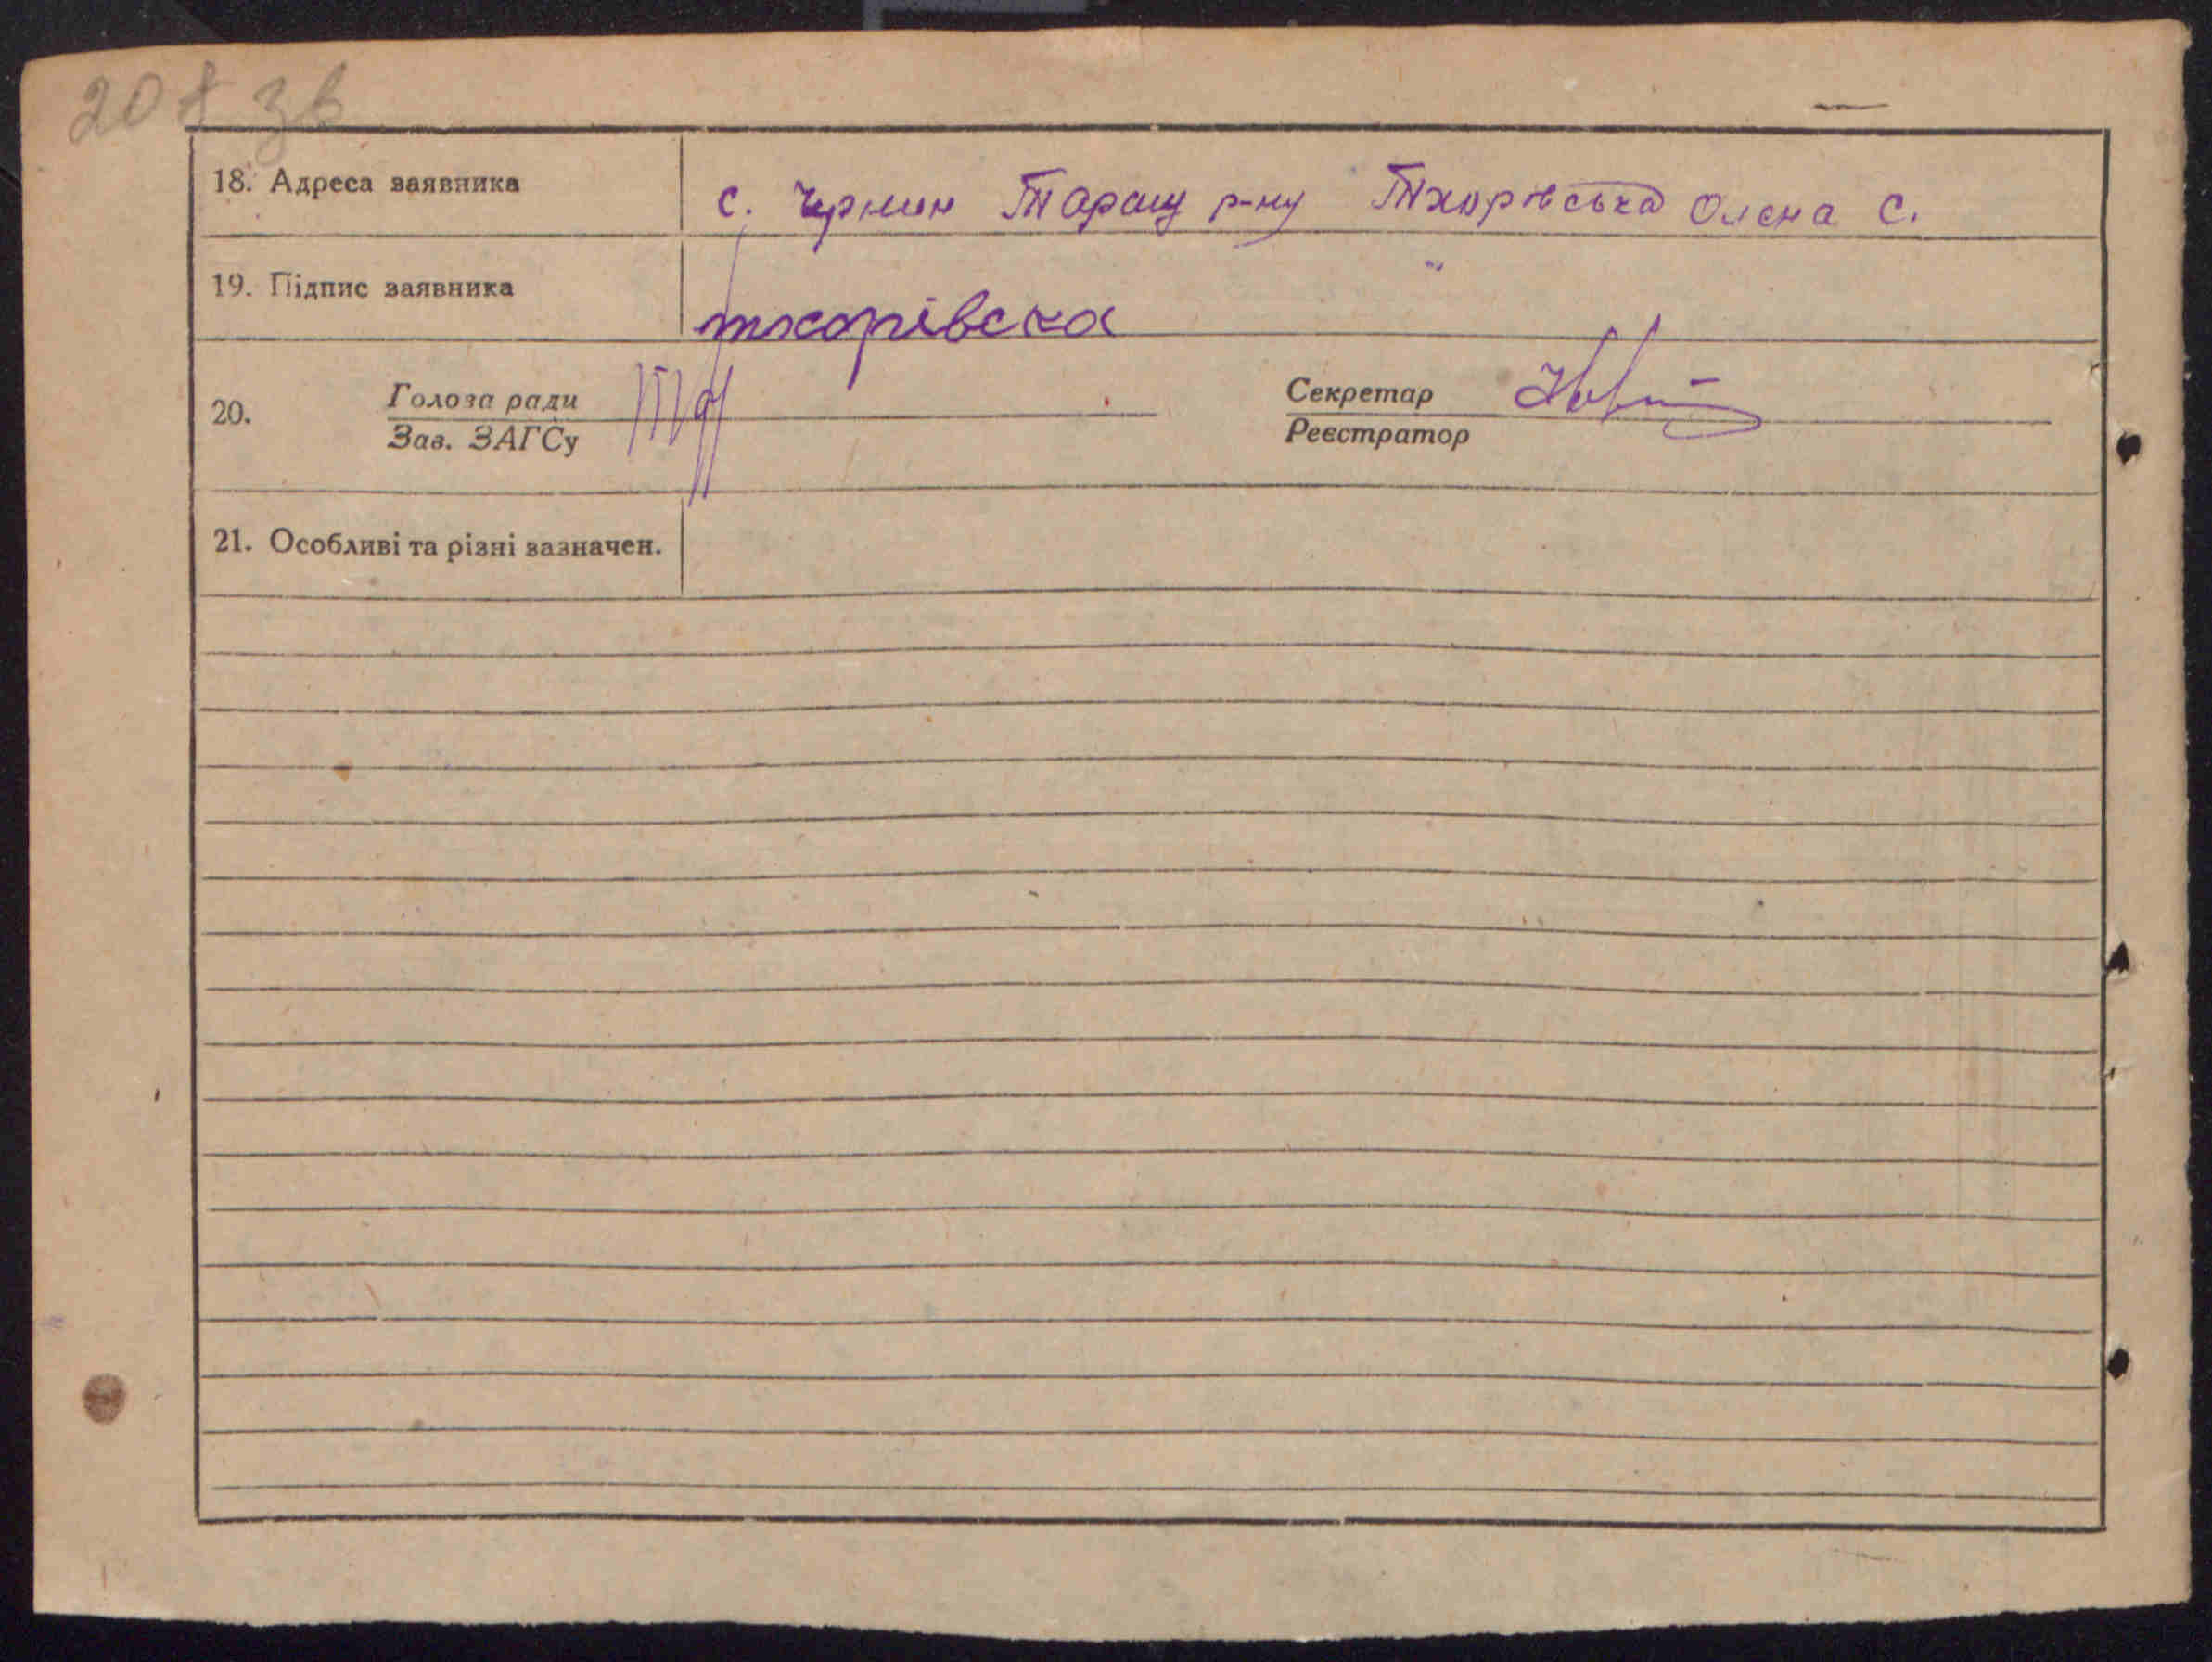 208 зв
18. Адреса заявника с. Чернин Таращ р-ну Тхорівська Олена С.
19. Підпис заявника тхорівска
20. Голова ради Секретар
Зав. ЗАГСу Реєстратор
21. Особливі та різні зазначен.